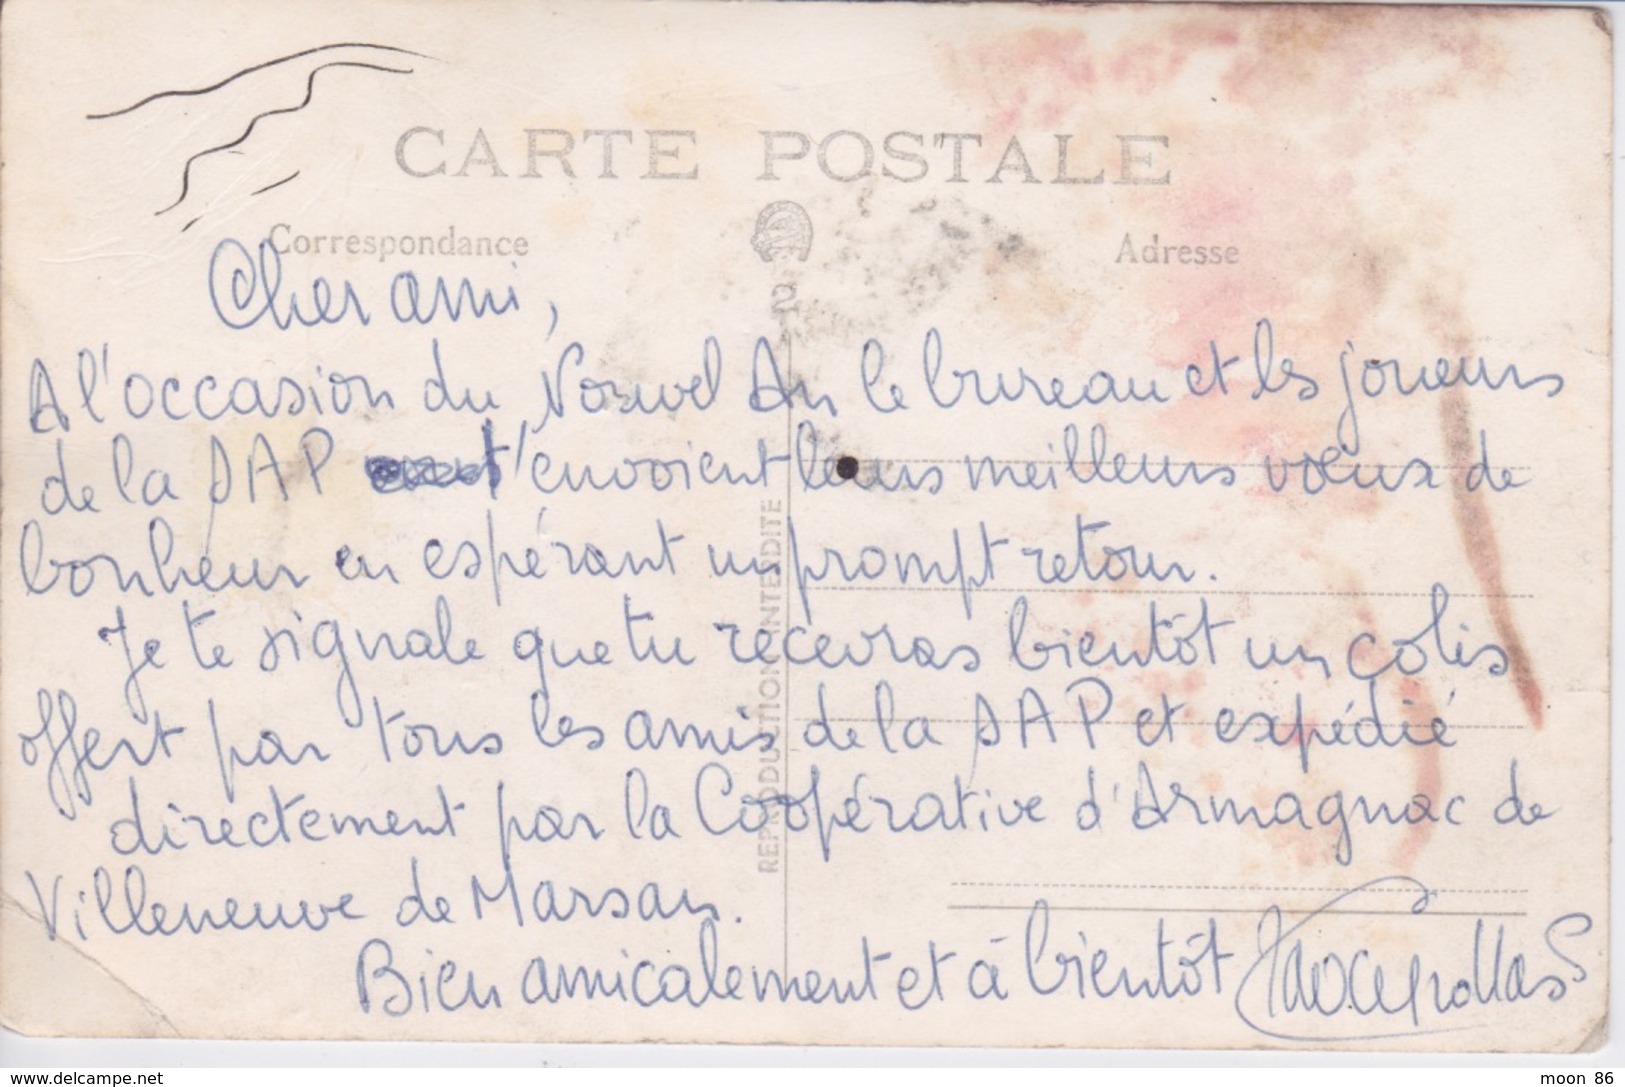 CARTE POSTALE
Correspondance
Adresse
Cher ami,
A l'occasion du Nouvel An le bureau et les joueurs
de la SAP t'envoient leurs meilleurs vœux de
bonheur en espérant un prompt retour.
Je te signale que tu recevras bientôt un colis
offert par tous les amis de la SAP et expédié
directement par la Coopérative d'Armagnac de
Villeneuve de Marsan.
Bien amicalement et à bientôt
REPRODUCTION INTERDITE
www.delcampe.net
moon 86